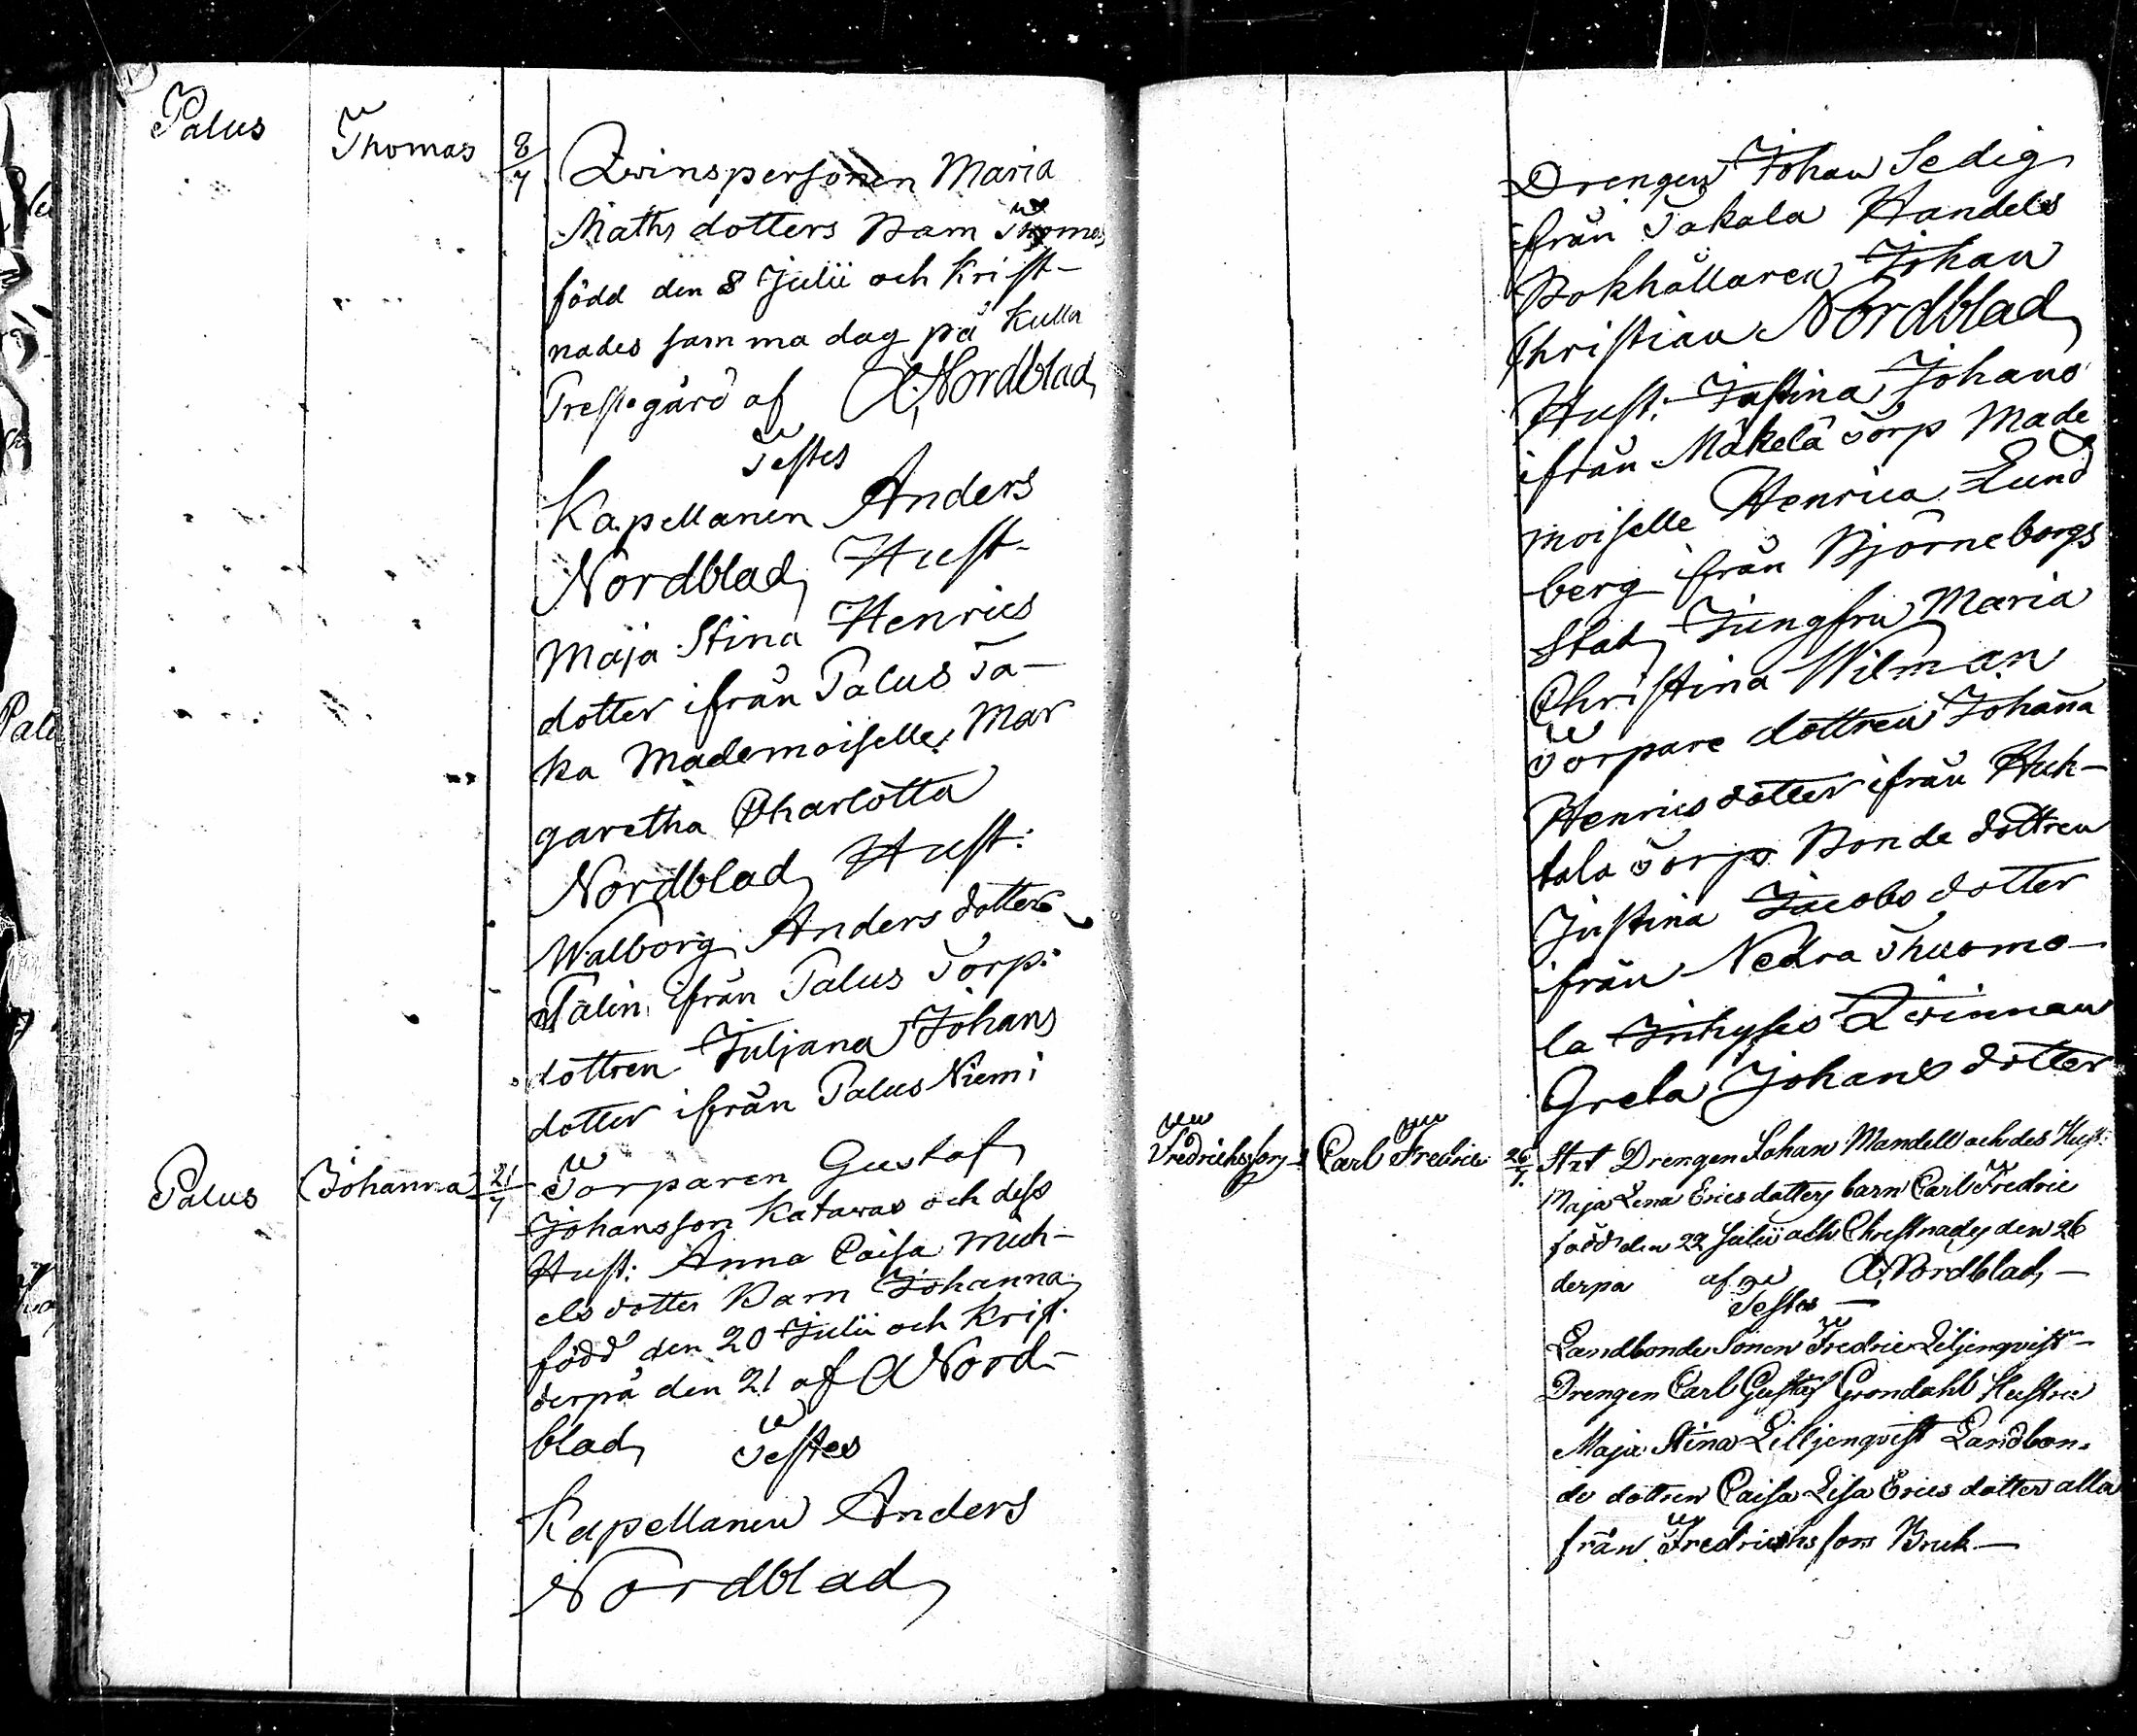 Palus
Thomas
8/7
Qvinspersonen Maria
Maths dotters Barn Thomas
född den 8 Julii och Krist-
nades samma dag på Kulla
Prestegård af A. Nordblad
Testes
Kapellanen Anders
Nordblad Hust-
Maja Stina Henrics
dotter ifrån Palus Ta-
ka Mademoiselle Mar
garetha Charlotta
Nordblad Hust:
Walborg Anders dotter
Palin ifrån Palus Torp:
dottren Juljana Johans
dotter ifrån Palus Niemi
Palus
Johanna
21/7
Torparen Gustaf
Johansson Katawas och dess
Hust: Anna Caisa Mich-
els dotter Barn Johanna
född den 20 Julii och Krist.
derpå den 21 af A Nord-
blad Testes
Kapellanen Anders
Nordblad
Drengen Johan Sedig
ifrån Takala Handels
Bokhållaren Johan
Christian Nordblad
Hust: Justina Johans
ifrån Mäkelä Torp Made
moiselle Henrica Lund
berg från Björneborgs
Stad Jungfru Maria
Christina Wilman
Torpare dottren Johanna
Henrics dotter ifrån Huh-
tala Torp Bonde dottren
Justina Jacobs dotter
ifrån Nedra Thuomo-
la Inhyses Qvinnan
Greta Johans dotter
Fredrichsfors
Carl Fredric
26/7.
Drengen Johan Mandell och des Hust:
Maja Lena Erics dotters barn Carl Fredric
född den 22 Julii och Chrestnades den 26
derpå af A. Nordblad -
Testes -
Landbonde Sonen Fredric Liljenqvist -
Drengen Carl Gustaf Grondahl Hustru
Maja Stina Lilljenqvist Landbon-
de dottren Caisa Lisa Erics dotter alla
från Fredrichsfors Bruk -